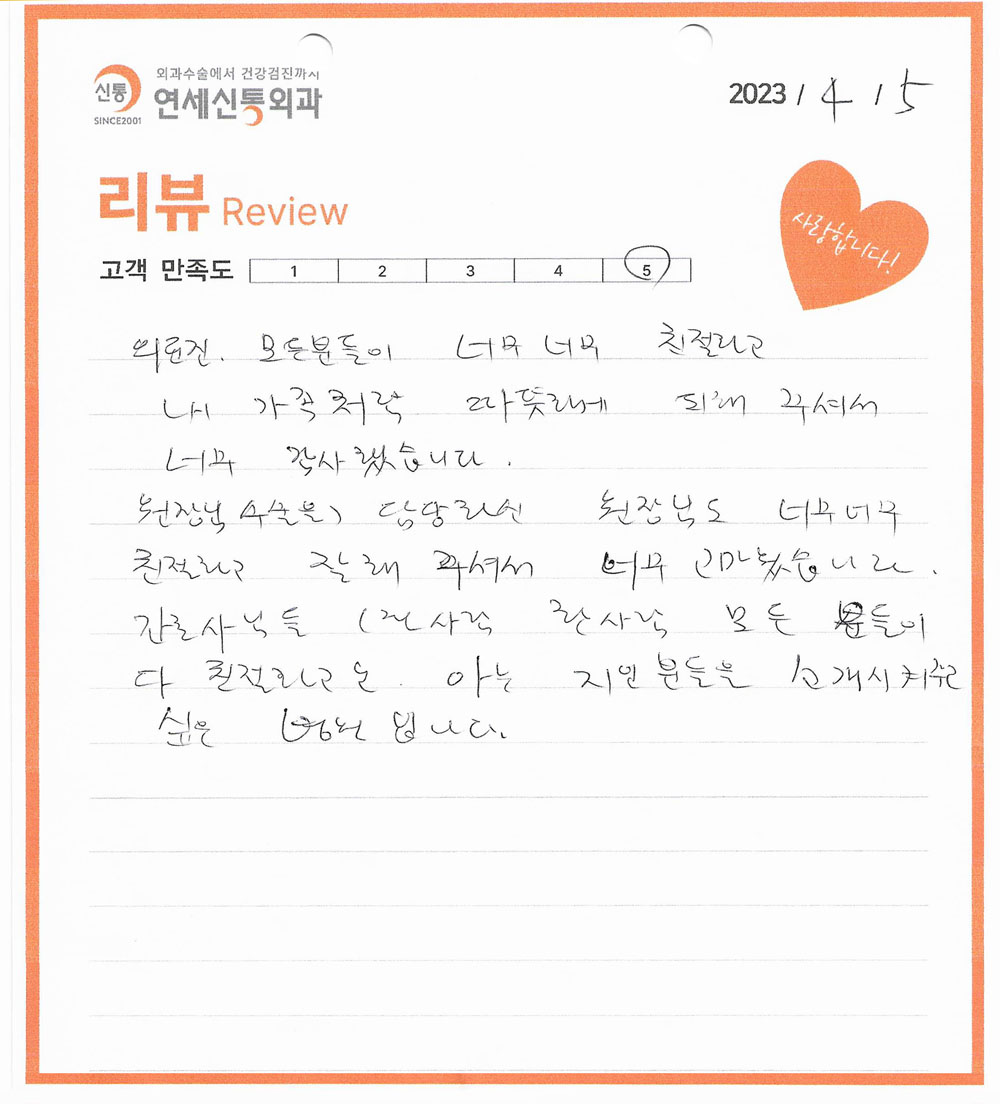 외과수술에서 건강검진까지
신통 연세신통외과
SINCE2001
2023 / 4 / 15
리뷰 Review
사랑합니다!
고객 만족도 1 2 3 4 5
의료진. 모든분들이 너무 너무 친절하고
내 가족처럼 따뜻하게 대해 주셔서
너무 감사했습니다.
원장님 수술을) 담당하신 원장님도 너무너무
친절하고 잘해 주셔서 너무 고마웠습니다.
간호사님들 (한사람 한사람 모든 분들이
다 친절하고요. 아는 지인분들을 소개시켜주고
싶은 병원 입니다.